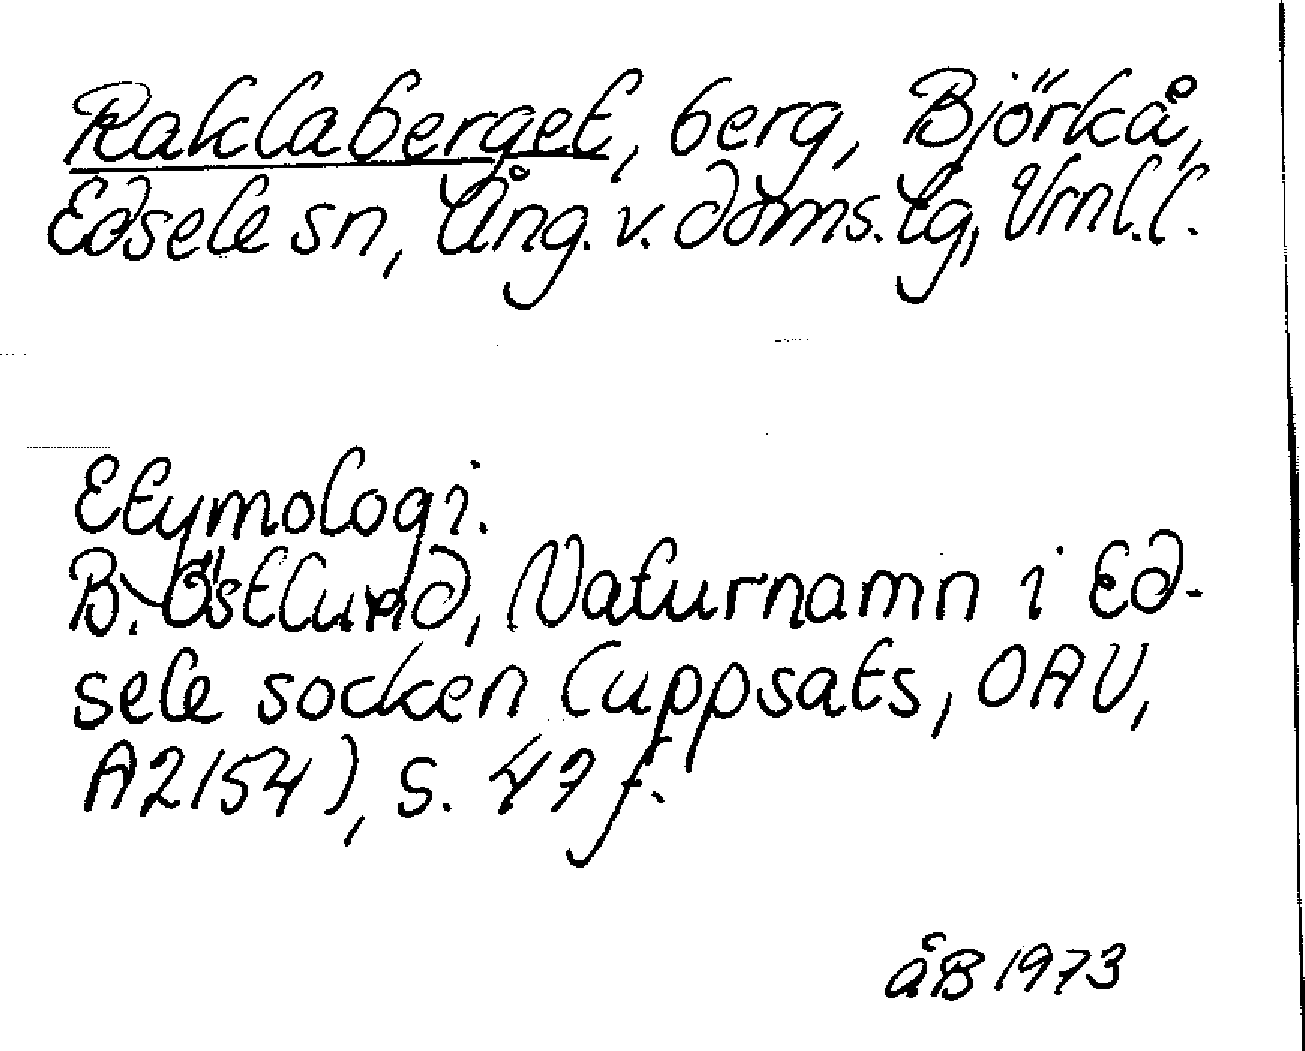 Raklaberget, berg, Björkå,
Edsele sn, Ång. v. doms.lg, Vrnl.l.
Etymologi.
B. Östlund, Naturnamn i Ed-
sele socken (uppsats, OAU,
A2154), s. 47 f.
åB 1973